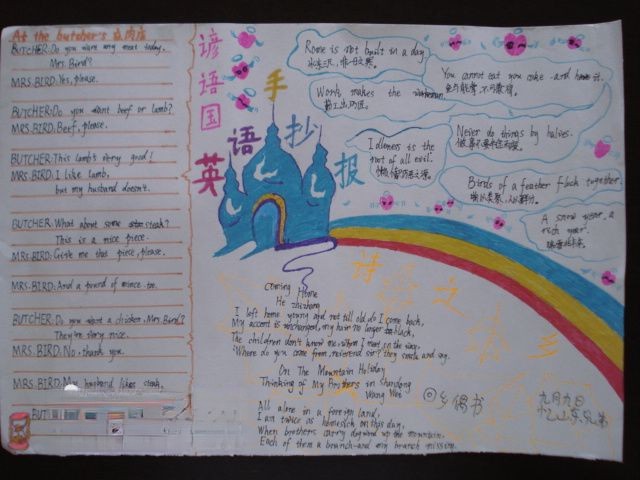 At the butcher's 在肉店
BUTCHER: Do you want any meat today,
Mrs. Bird?
MRS. BIRD: Yes, please.
BUTCHER: Do you want beef or lamb?
MRS. BIRD: Beef, please.
BUTCHER: This lamb's very good!
MRS. BIRD: I like lamb,
but my husband doesn't.
BUTCHER: What about some steak?
This is a nice piece.
MRS. BIRD: Give me this piece, please.
MRS. BIRD: And a pound of mince too.
BUTCHER: Do you want a chicken, Mrs. Bird?
They're very nice.
MRS. BIRD: No, thank you.
MRS. BIRD: My husband likes steak,
BUT
谚语国
英语手抄报
Rome is not built in a day
冰冻三尺，非一日之寒。
You cannot eat you cake and have it.
鱼与熊掌，不可兼得。
Work makes the
勤工出巧匠。
Never do things by halves.
Idleness is the
root of all evil.
Birds of a feather flock together.
物以类聚，人以群分。
A snow year, a
rich year.
瑞雪兆丰年。
诗之
Coming Home
He zhizhang
I left home young and not till old do I come back,
My accent is unchanged, my hair no longer black,
The children don't know me, whom I meet on the way,
"Where do you come from, reverend sir?" they smile and say.
On The Mountain Holiday
Thinking of My Brothers in Shandong
Wang Wei
All alone in a foreign land,
I am twice as homesick on this day,
When brothers carry dogwood up the mountain,
Each of them a branch—and my branch missing.
回乡偶书
九月九日
忆山东兄弟